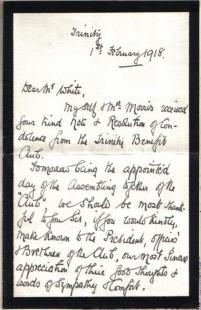 Trinity
1st February 1918.
Dear Mr White,
Myself & Mrs Morris received
your kind Note & Resolution of Con-
dolence from the Trinity Benefit
Club.
Tomorrow being the appointed
day of the Assembling together of the
"Club" we should be most thank-
ful to you Sir, if you would kindly,
make known to the President, officers
& Brethren of the Club, our most Sincere
appreciation of their good thoughts &
words of Sympathy & Comfort.